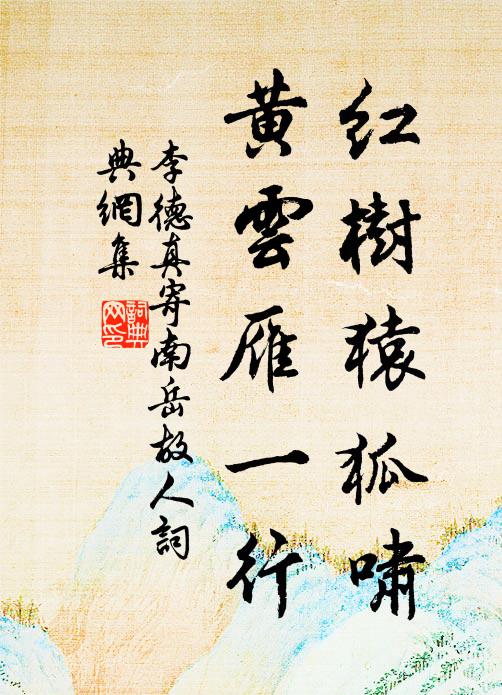 紅樹猿狐嘯
黃雲雁一行
李德真寄南岳故人詞
典網集
詞典網印